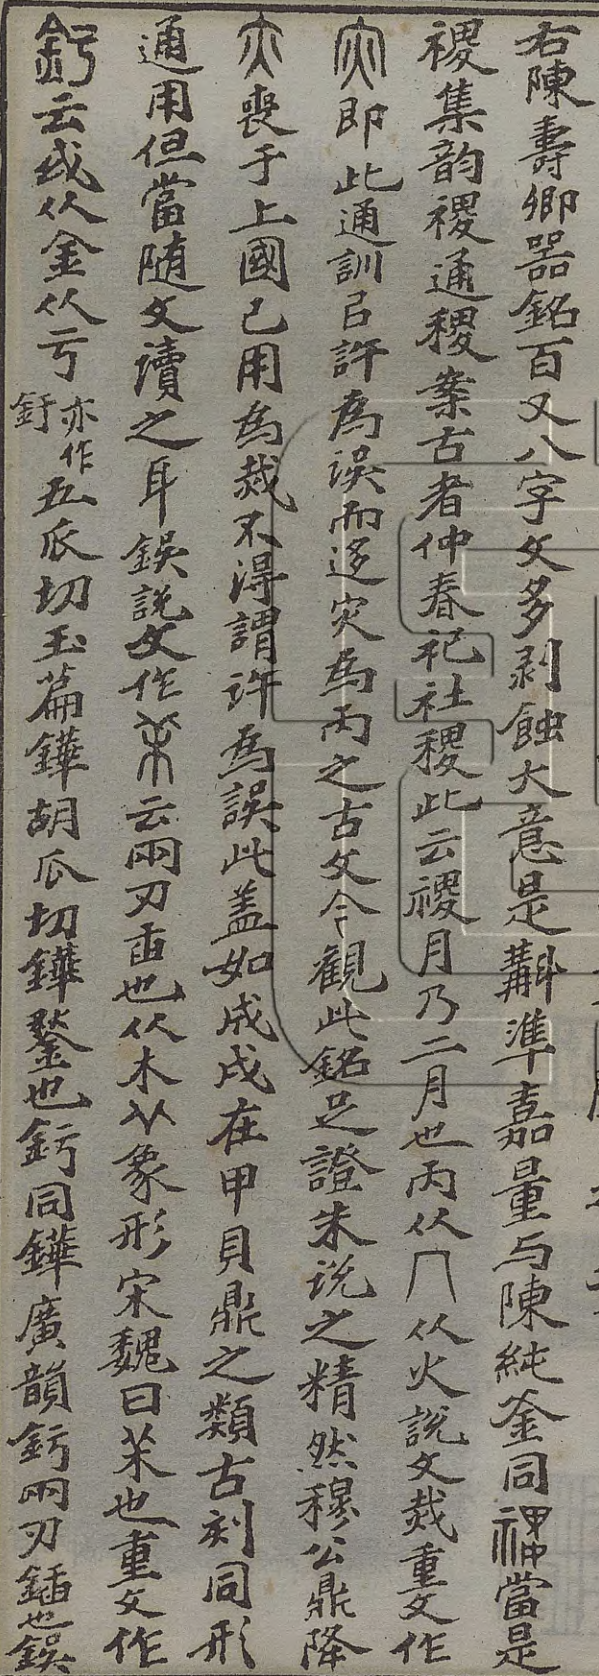 右陳壽卿器銘百又八字文多剥蝕大意是斠準嘉量与陳純釜同𥛠當是
禝集韵禝通稷案古者仲春祀社稷此云禝月乃二月也丙从冂从火說文烖重文作
灾即此通訓㠯許爲誤而迻灾爲丙之古文今觀此銘足證朱说之精然穆公鼎降
喪于上國已用爲烖不得謂许爲誤此盖如成戌在甲貝鼎之類古刻同形
通用但當随文讀之耳鋘說文作𣏟云兩刃臿也从木𠆢象形宋魏曰𣏟也重文作
釫云或从金从亏亦作釪五瓜切玉篇鏵胡瓜切鏵鍫也釫同鏵廣韻釫兩刃鍤也鋘